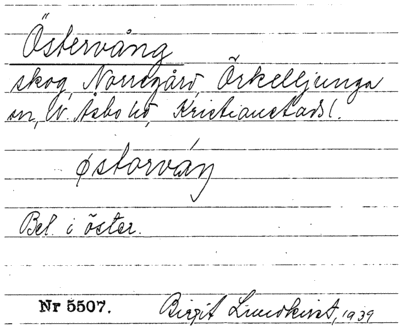 Östervång
skog, Norregård, Örkelljunga
sn, V. Åsbo hd, Kristianstads l.
østorváŋ
Bel. i öster.
Nr 5507. Birgit Lundkvist, 1939